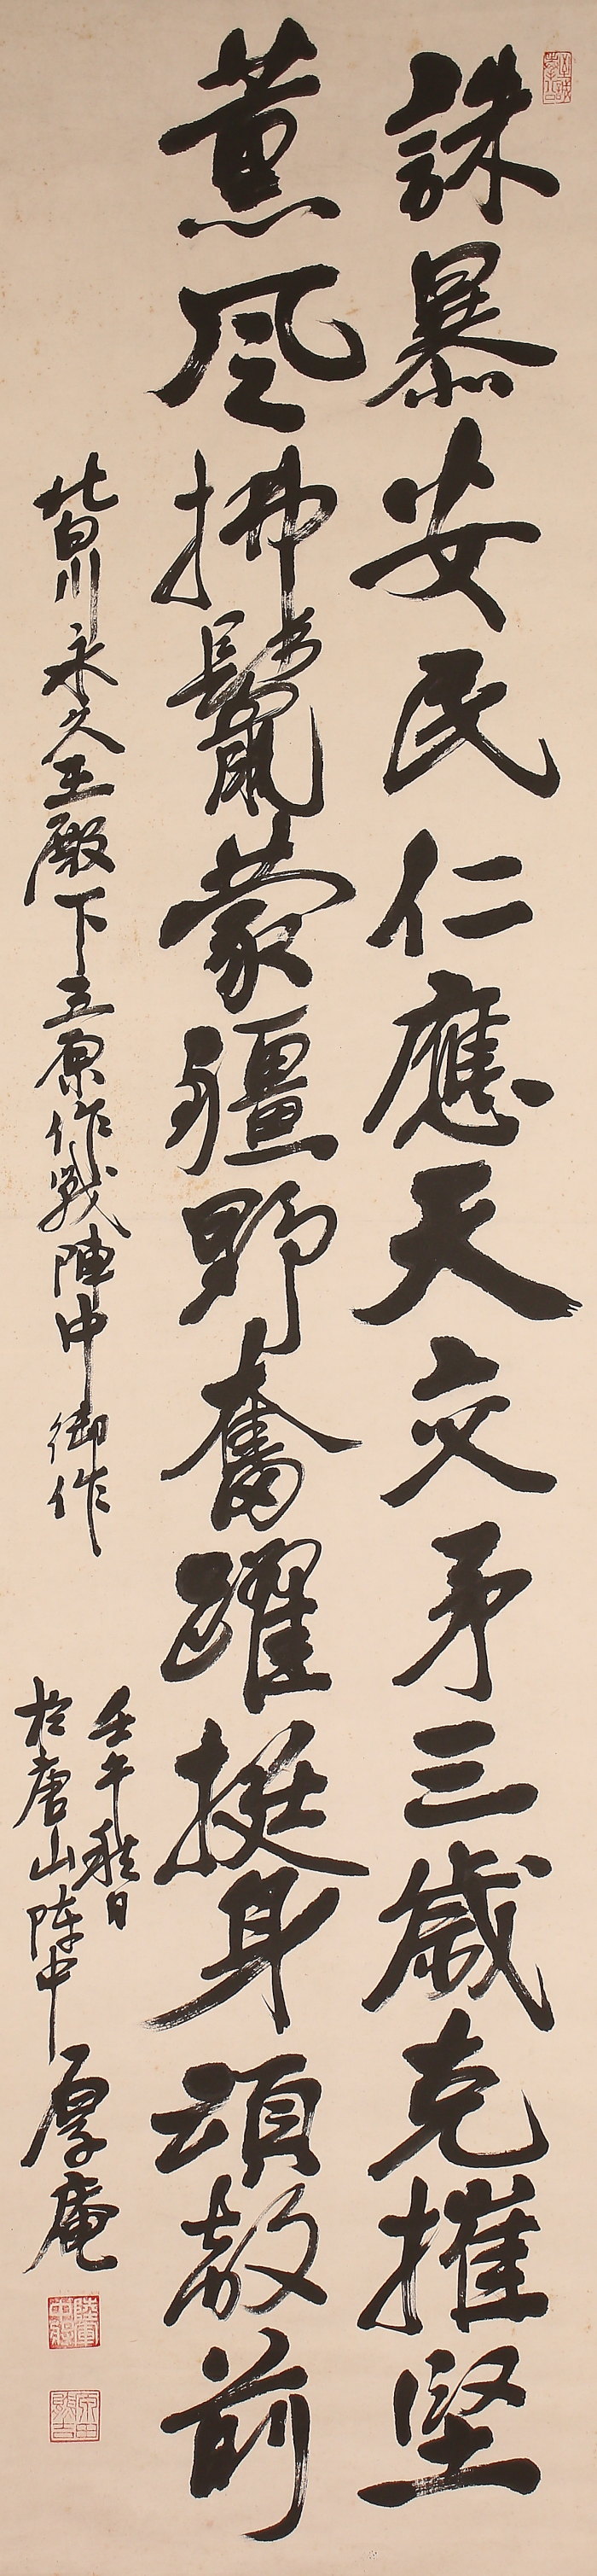 誅暴安民仁應天交矛三歳克摧堅
薫风拂鬣蒙疆野奮躍挺身頌敵前
北白川永久王殿下五原作戦陣中御作
壬午秋日
於唐山陣中
厚庵
陸軍
原田